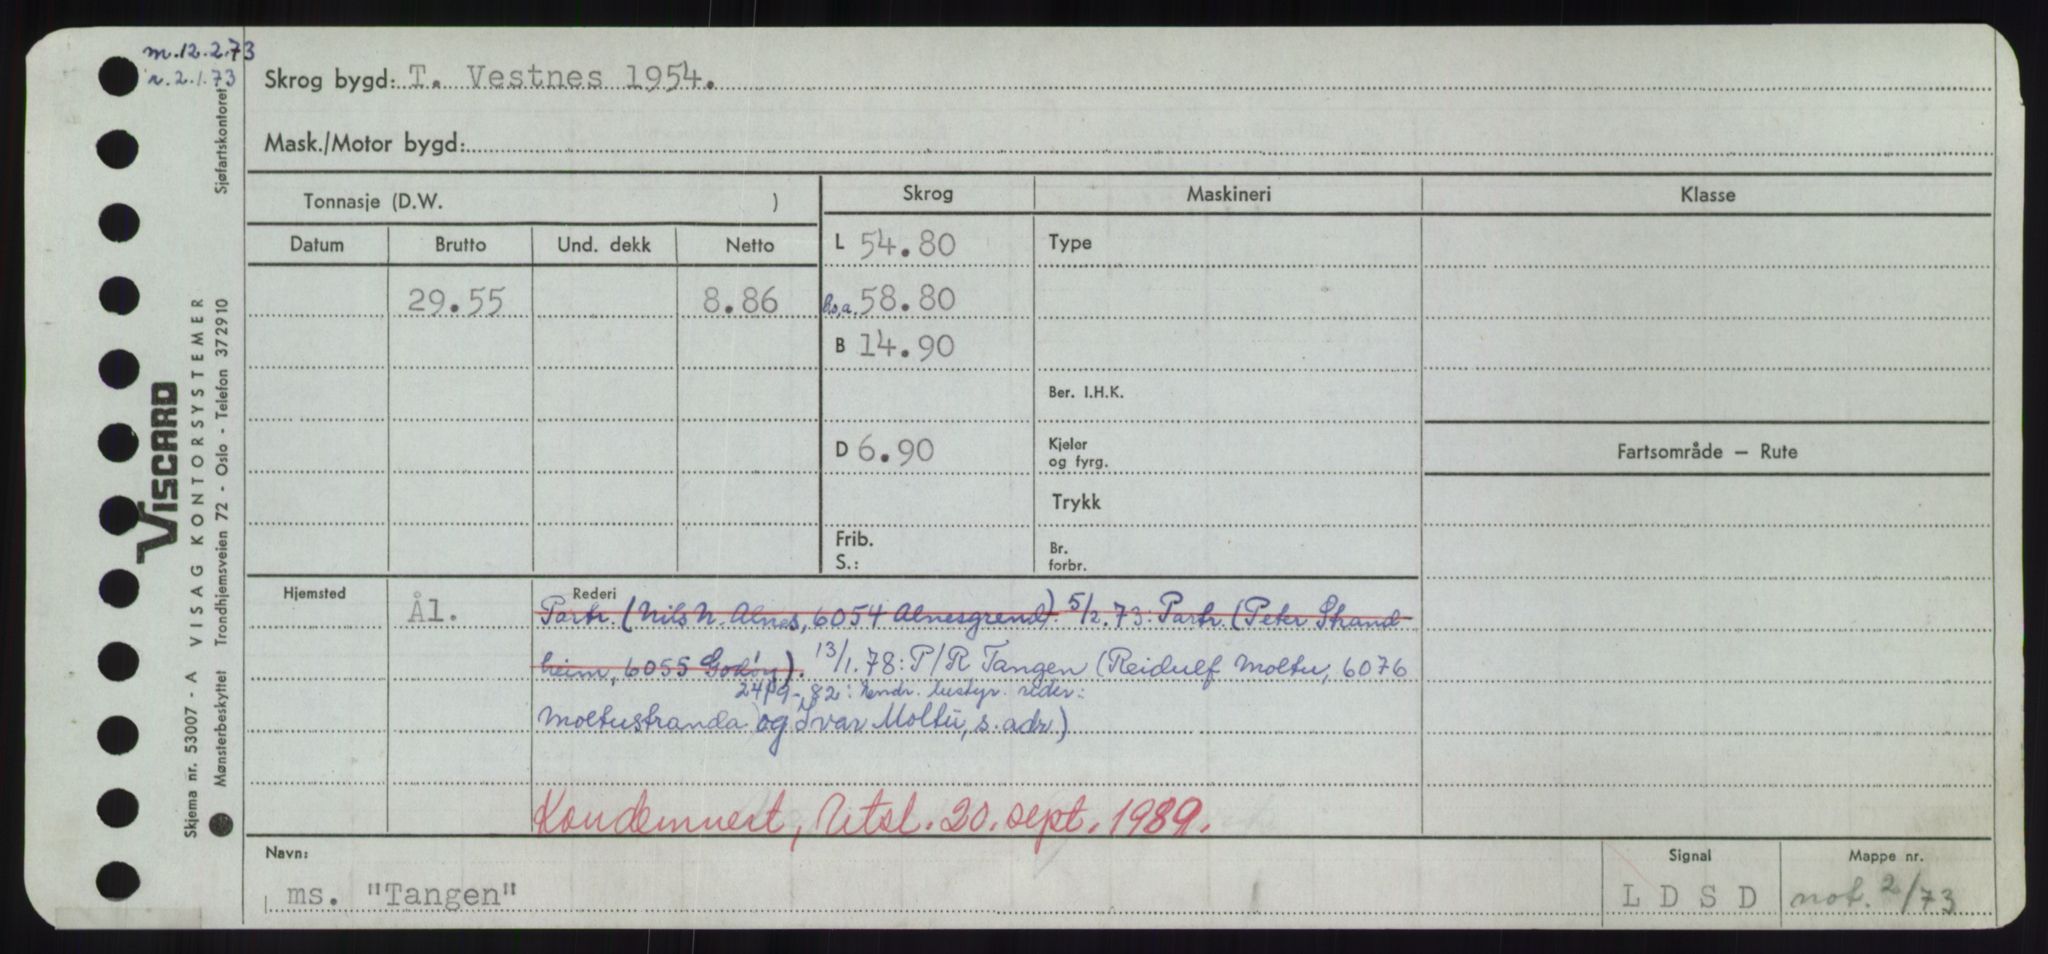 m.12.2.73
r.2.1.73
Skrog bygd: T. Vestnes 1954.
Mask./Motor bygd:
Tonnasje (D.W. )
Skrog
Maskineri
Klasse
Datum
Brutto
Und. dekk
Netto
L 54.80
Type
29.55
8.86
b.s.a. 58.80
B 14.90
Ber. I.H.K.
D 6.90
Kjeler
og fyrg.
Fartsområde — Rute
Trykk
Frib.
S.:
Br.
forbr.
Hjemsted
Ål.
Rederi
Partr. (Nils N. Alnes, 6054 Alnesgrend). 5/2.73: Partr. (Peter Strand-
heim, 6055 Godøy). 13/1.78: P/R Tangen (Reidulf Moltu, 6076
24/9-82: Endr. bestyr. reder:
Moltustranda og Ivar Moltu, s. adr.)
Kondemnert, Utsl. 20. sept. 1989.
Navn:
ms. "Tangen"
Signal
L D S D
Mappe nr.
not. 2/73
Sjøfartskontoret
VISCARD
VISAG KONTORSYSTEMER
Trondhjemsveien 72 - Oslo - Telefon 372910
Skjema nr. 53007 - A
Mønsterbeskyttet